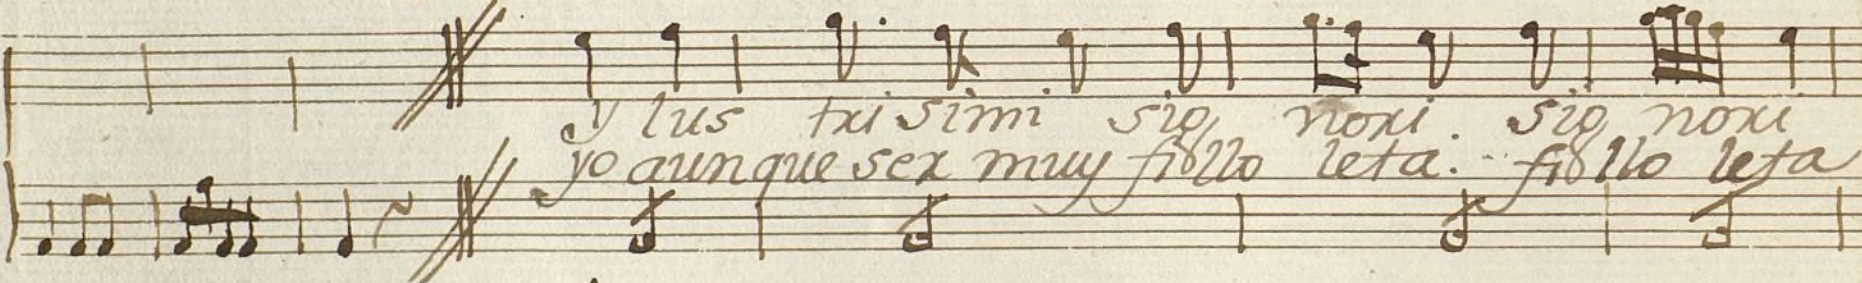 y lus tri simi sig nori. sig nori
yo aunque ser muy fiollo leta. fiollo leta